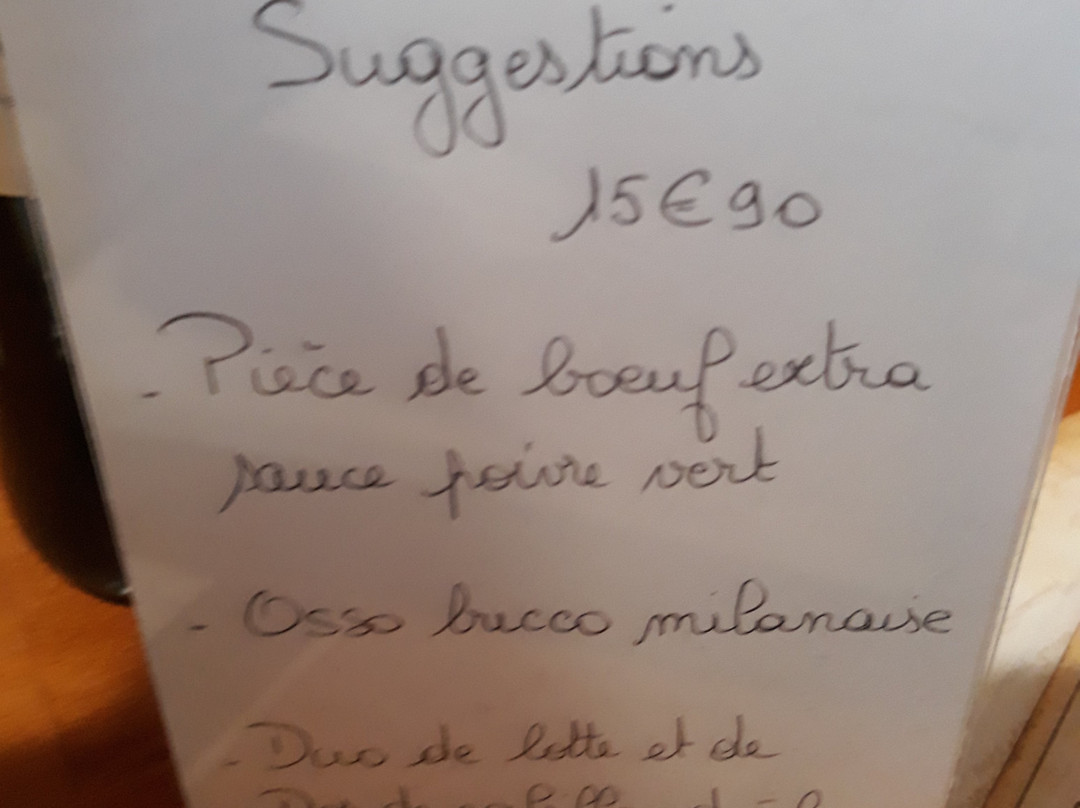 Suggestions
15€90
- Pièce de bœuf extra
sauce poivre vert
- Osso bucco milanaise
- Duo de lotte et de